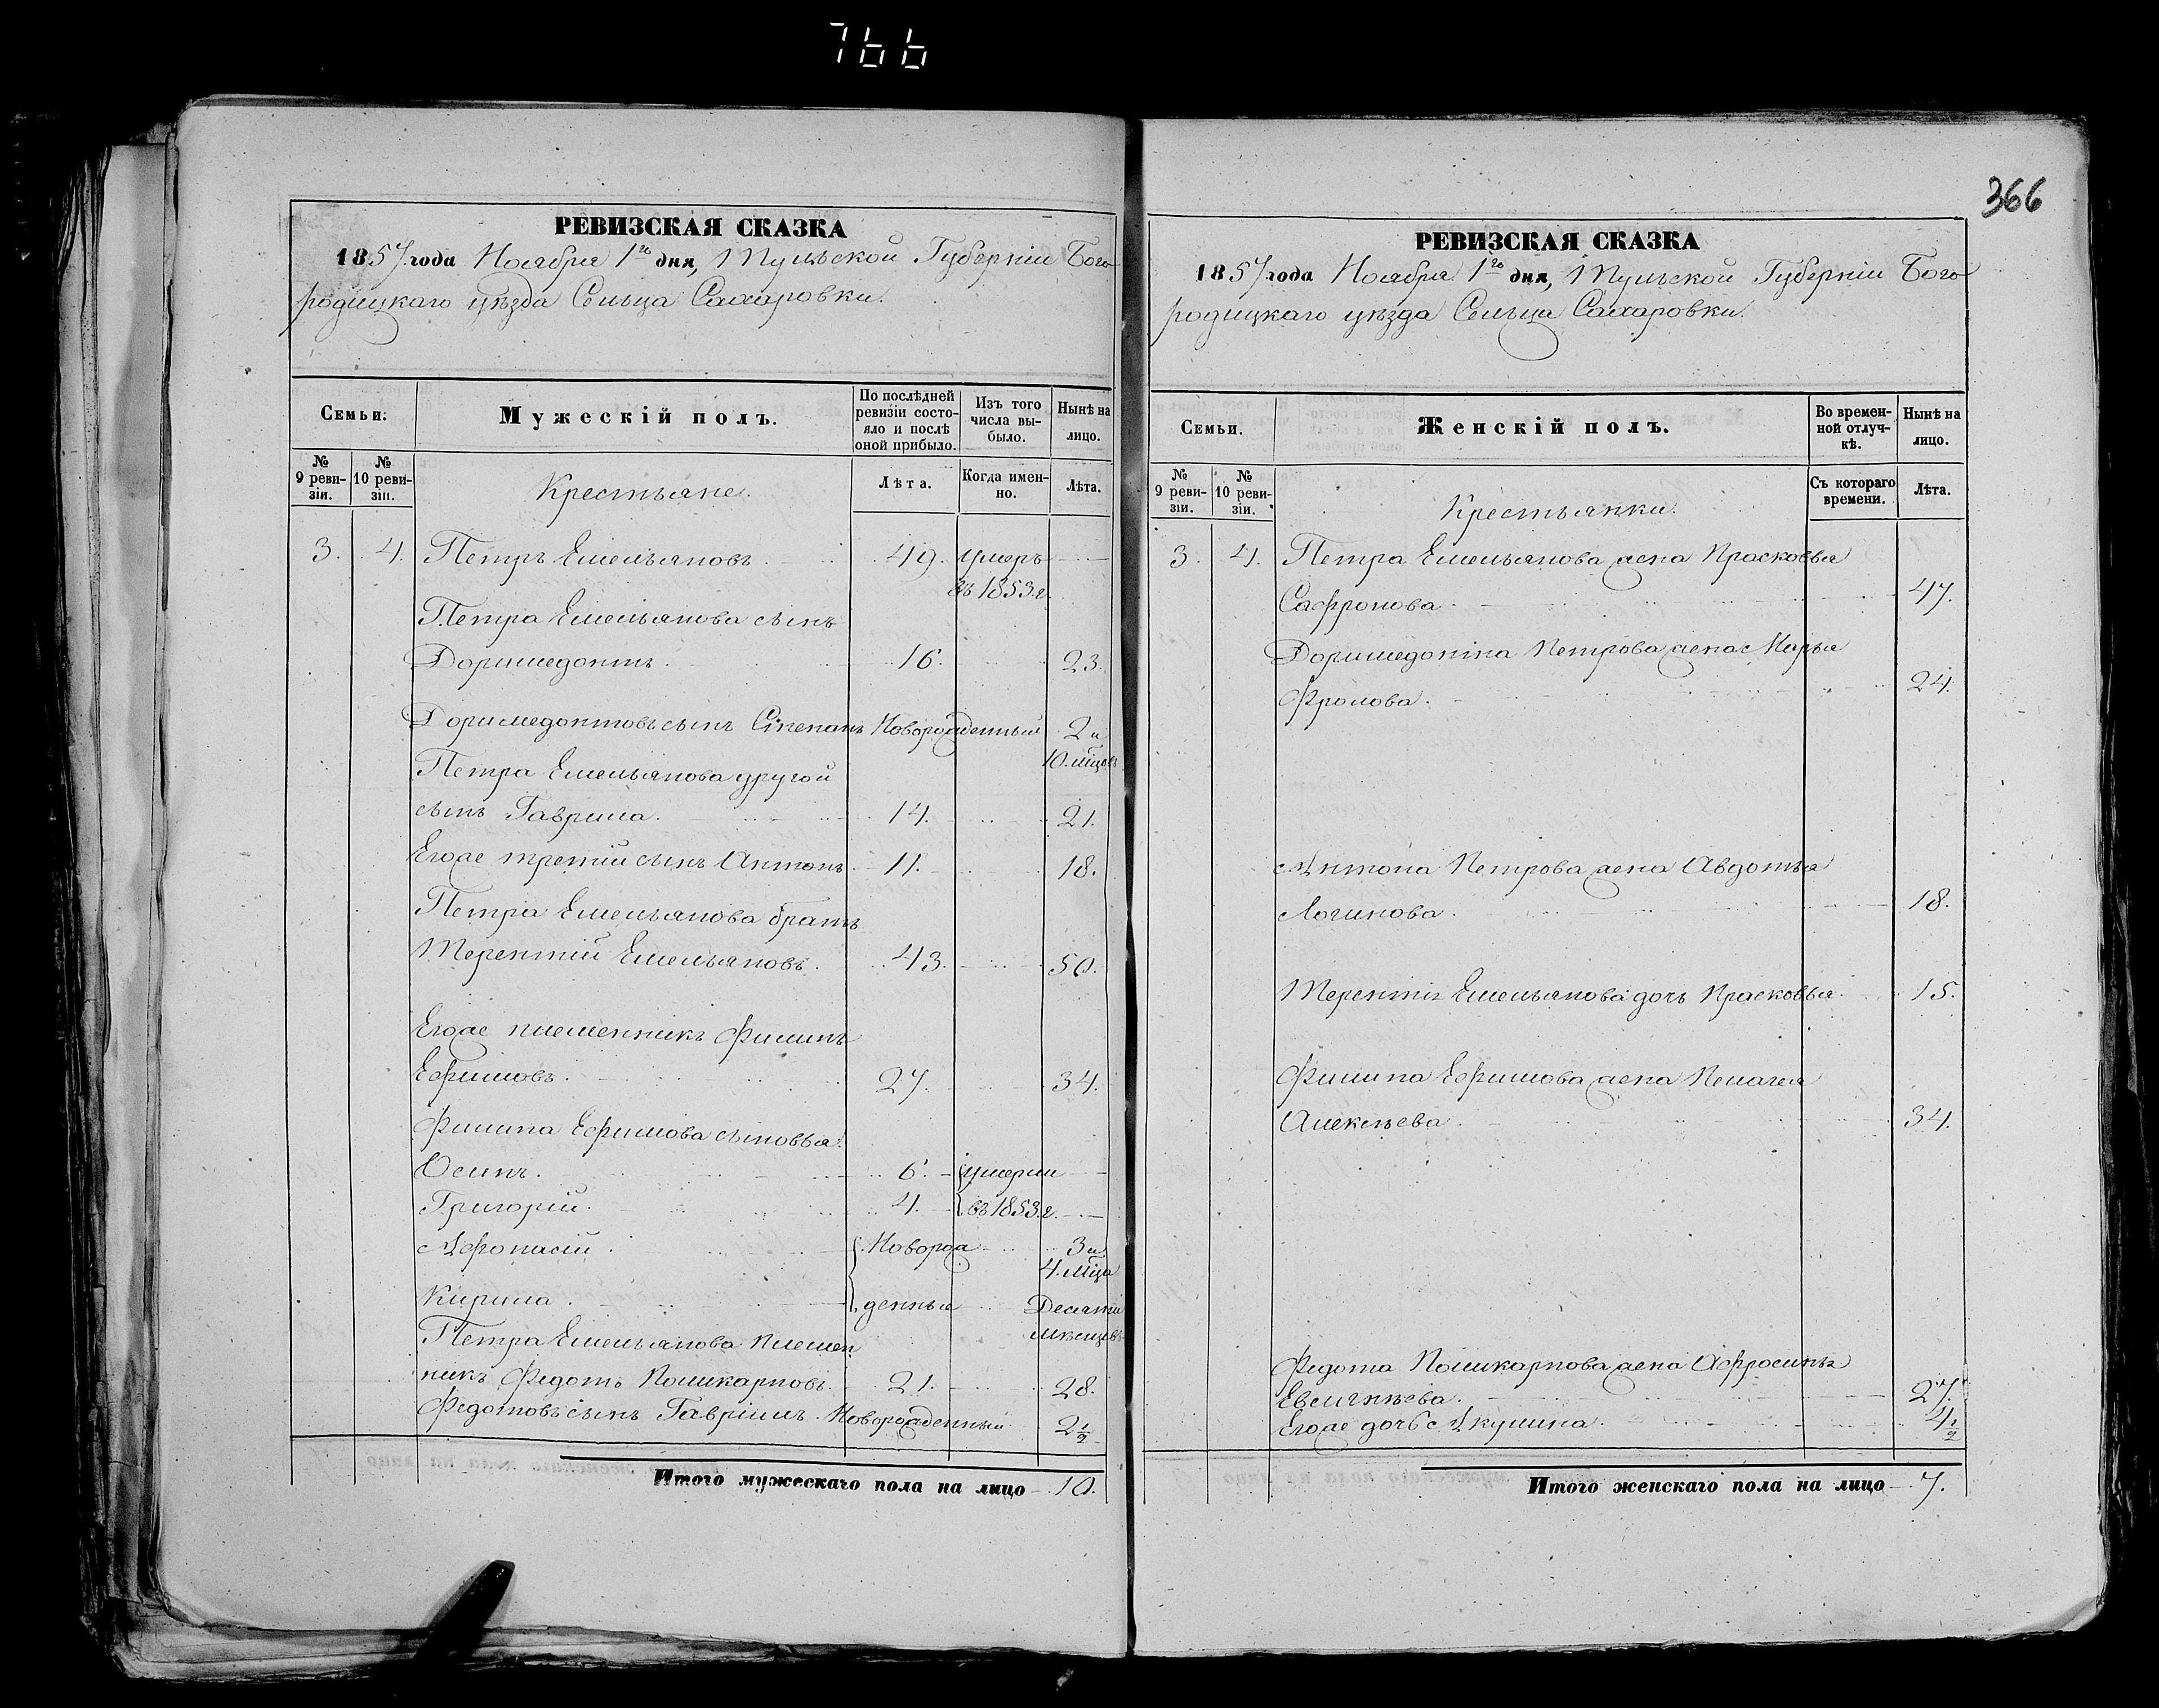 766
366
РЕВИЗСКАЯ СКАЗКА
1857 года Ноября 1го дня, Тульской Губерніи Бого
родицкаго уѣзда Сельца Сахаровки.
Семьи.
Мужескій полъ.
По послѣдней ревизіи состояло и послѣ оной прибыло.
Изъ того числа выбыло.
Нынѣ на лицо.
№ 9 ревизіи.
№ 10 ревизіи.
Крестьяне.
Лѣта.
Когда именно.
Лѣта.
3. 4. Петръ Емельяновъ. 49. умеръ
въ 1853 г.
Петра Емельянова сынъ
Доримедонтъ. 16. 23.
Доримедонтовъ сынъ Степанъ Новорожденный 2 и
10. мѣцовъ
Петра Емельянова другой
сынъ Гаврила. 14. 21.
Егоже третій сынъ Антонъ. 11. 18.
Петра Емельянова братъ
Терентій Емельяновъ. 43. 50.
Егоже племенникъ Филипъ
Ефимовъ. 27. 34.
Филипа Ефимова сыновья:
Осипъ. 6. умерли
Григорій. 4. въ 1853. г.
Афонасій. Новорож 3 и
4. мѣца
Кирила. денныя Десяти
мѣсяцевъ
Петра Емельянова племен
никъ Федотъ Поликарповъ. 21. 28.
Федотовъ сынъ Гавріилъ. Новорожденный. 2 1/2
Итого мужескаго пола на лицо 10.
РЕВИЗСКАЯ СКАЗКА
1857 года Ноября 1го дня, Тульской Губерніи Бого
родицкаго уѣзда Сельца Сахаровки.
Семьи.
Женскій полъ.
Во временной отлучкѣ.
Нынѣ на лицо.
№ 9 ревизіи.
№ 10 ревизіи.
Крестьянки.
Съ котораго времени.
Лѣта.
3. 4. Петра Емельянова жена Прасковья
Сафронова. 47.
Доримедонта Петрова жена Марья
Фролова. 24.
Антона Петрова жена Авдотья
Логинова. 18.
Терентія Емельянова дочь Прасковья. 15.
Филипа Ефимова жена Пелагея
Алексѣева. 34.
Федота Поликарпова жена Афросинья
Евсигнѣева. 27.
Егоже дочь Акулина. 4 1/2
Итого женскаго пола на лицо 7.